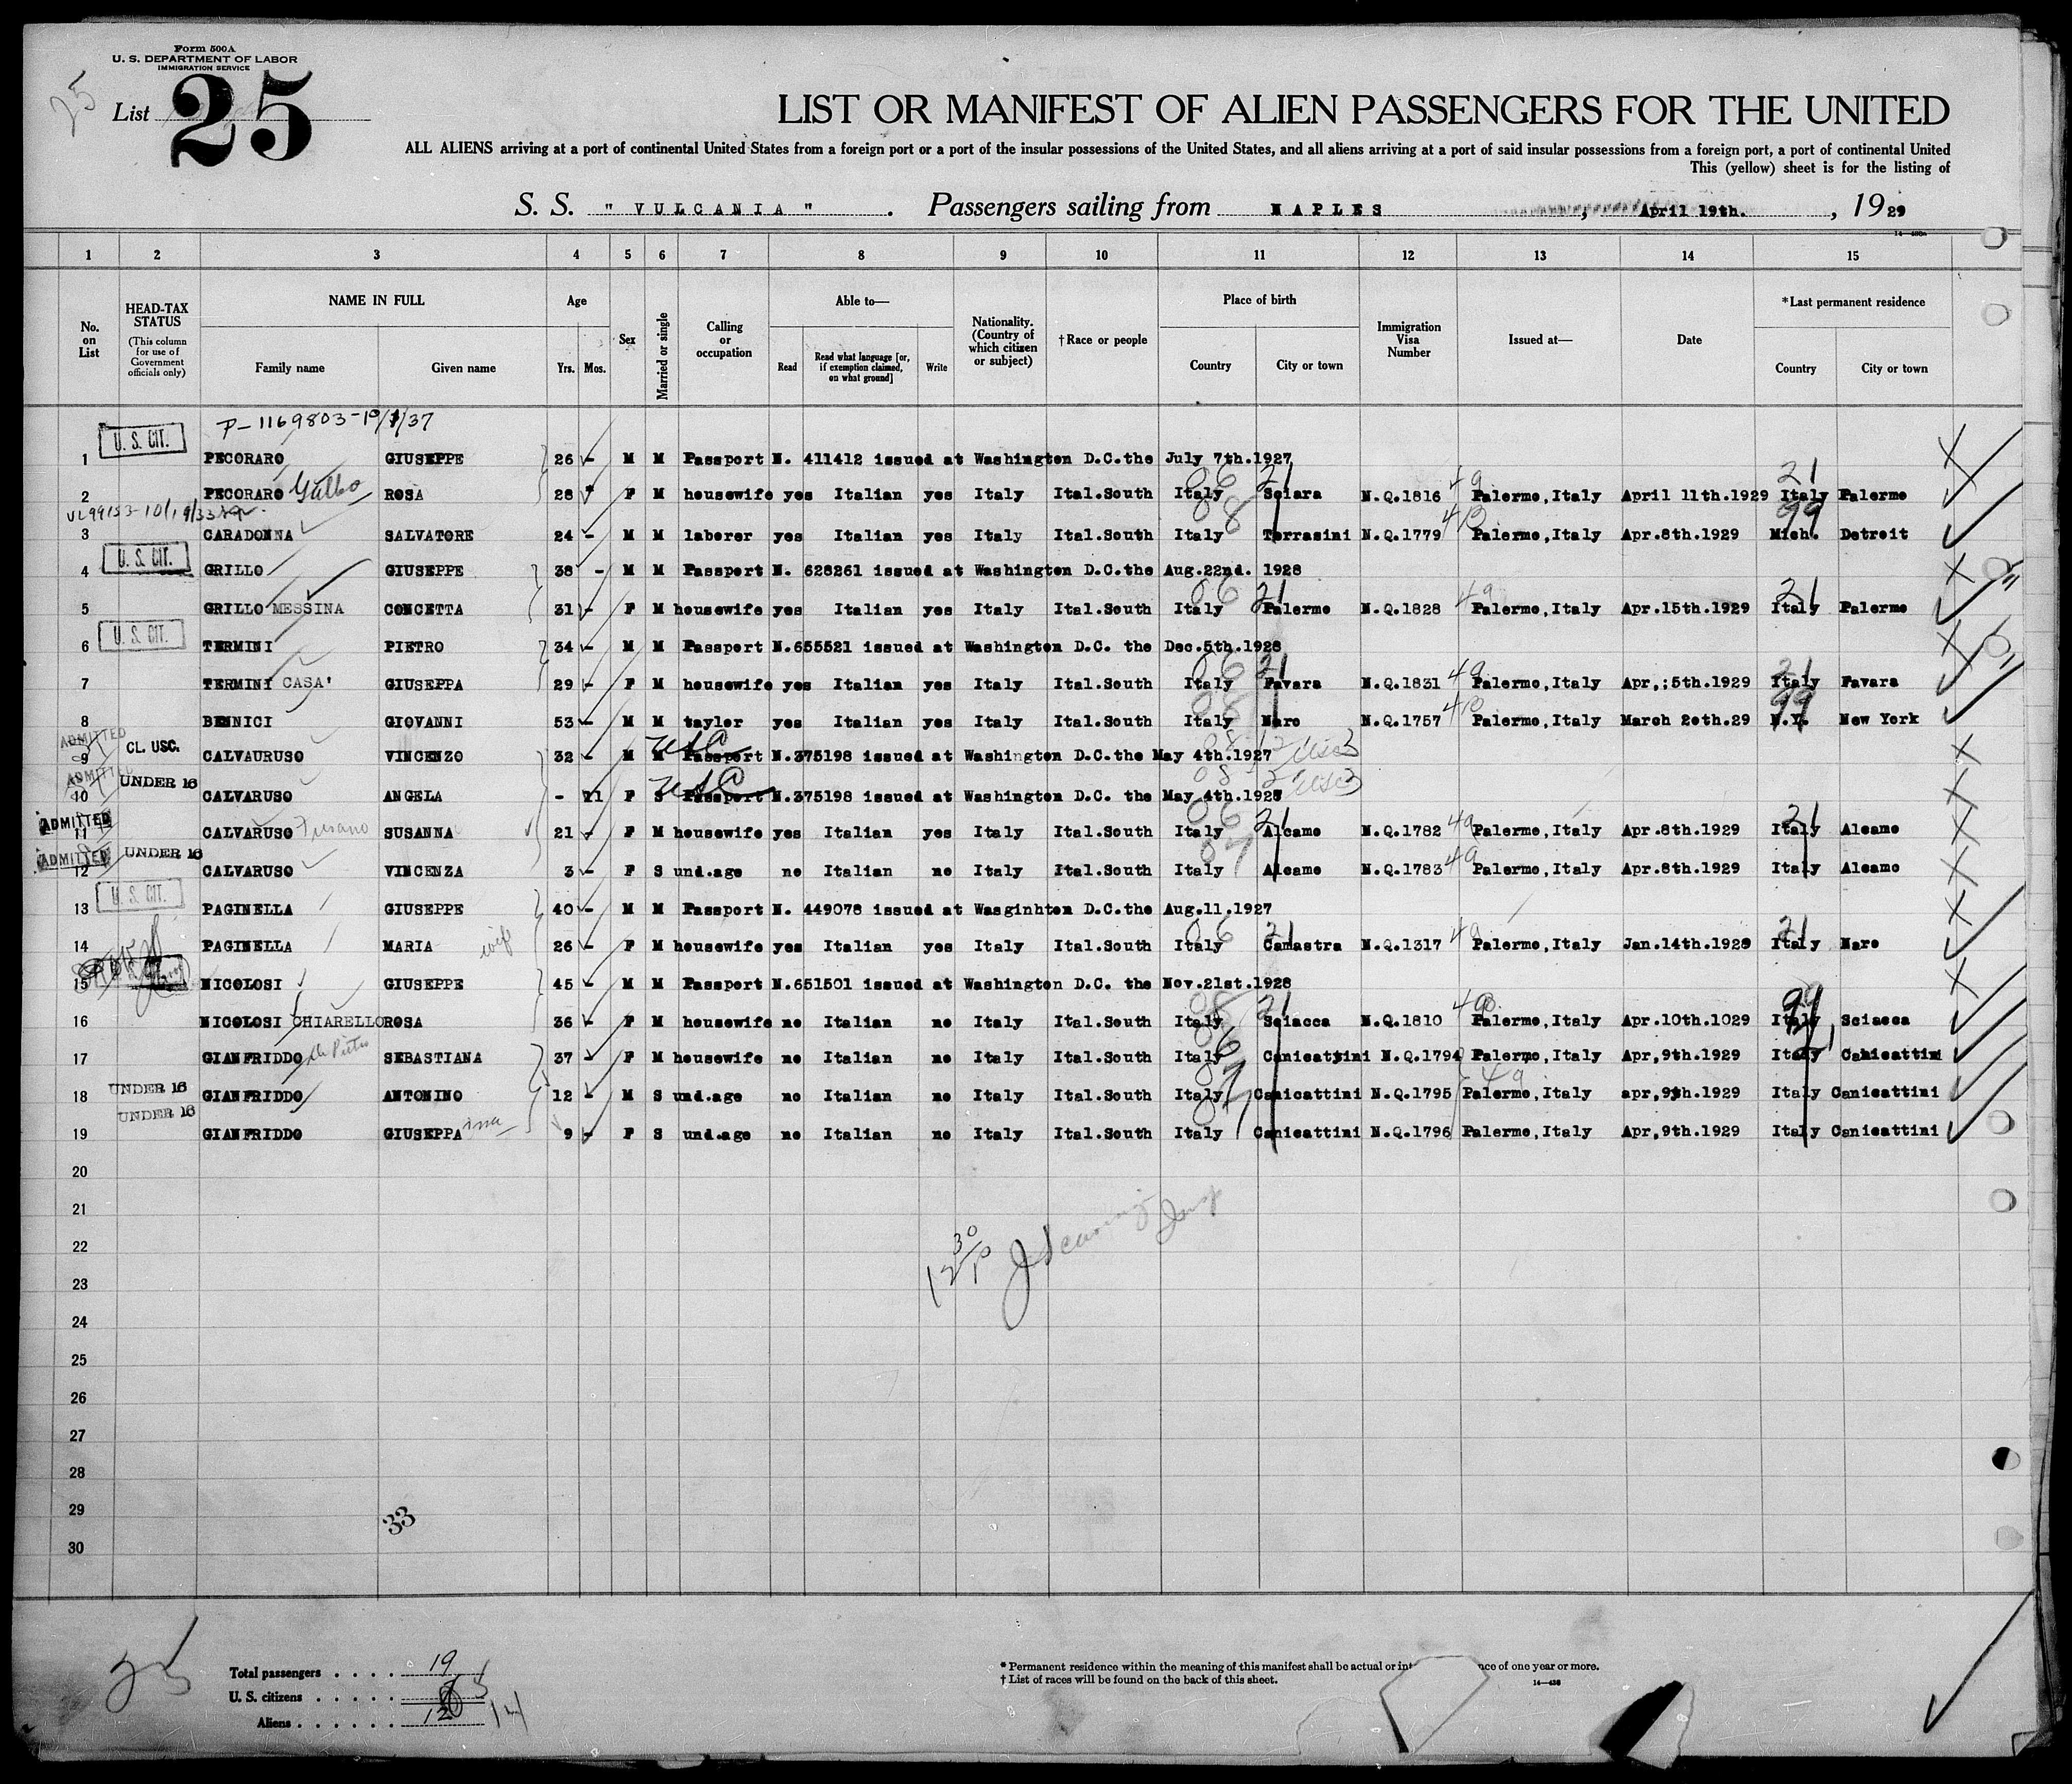 Form 500A
U. S. DEPARTMENT OF LABOR
IMMIGRATION SERVICE
25
List 25
LIST OR MANIFEST OF ALIEN PASSENGERS FOR THE UNITED
ALL ALIENS arriving at a port of continental United States from a foreign port or a port of the insular possessions of the United States, and all aliens arriving at a port of said insular possessions from a foreign port, a port of continental United
This (yellow) sheet is for the listing of
S. S. " VULCANIA " . Passengers sailing from NAPLES , April 19th. , 1929
1 2 3 4 5 6 7 8 9 10 11 12 13 14 15
No. on List
HEAD-TAX STATUS (This column for use of Government officials only)
NAME IN FULL Family name Given name
Age Yrs. Mos.
Sex
Married or single
Calling or occupation
Able to— Read Read what language [or, if exemption claimed, on what ground] Write
Nationality. (Country of which citizen or subject)
†Race or people
Place of birth Country City or town
Immigration Visa Number
Issued at—
Date
*Last permanent residence Country City or town
P-1169803-10/1/37
1 U. S. CIT. PECORARO GIUSEPPE 26 - M M Passport N. 411412 issued at Washington D.C.the July 7th.1927
2 PECORARO Galbo ROSA 28 F M housewife yes Italian yes Italy Ital.South Italy Sciara N.Q.1816 Palermo,Italy April 11th.1929 Italy Palermo
3 CARADONNA SALVATORE 24 - M M laborer yes Italian yes Italy Ital.South Italy Terrasini N.Q.1779 Palermo,Italy Apr.8th.1929 Mich. Detroit
4 U. S. CIT. GRILLO GIUSEPPE 38 - M M Passport N. 628261 issued at Washington D.C.the Aug.22nd. 1928
5 GRILLO MESSINA CONCETTA 31 - F M housewife yes Italian yes Italy Ital.South Italy Palermo N.Q.1828 Palermo,Italy Apr.15th.1929 Italy Palermo
6 U. S. CIT. TERMINI PIETRO 34 - M M Passport N.655521 issued at Washington D.C. the Dec.5th.1928
7 TERMINI CASA' GIUSEPPA 29 - F M housewife yes Italian yes Italy Ital.South Italy Favara N.Q.1831 Palermo,Italy Apr,;5th.1929 Italy Favara
8 BENNICI GIOVANNI 53 - M M tayler yes Italian yes Italy Ital.South Italy Naro N.Q.1757 Palermo,Italy March 20th.29 N.Y. New York
9 ADMITTED CL. USC. CALVAURUSO VINCENZO 32 - M M USC Passport N.375198 issued at Washington D.C.the May 4th.1927
10 ADMITTED UNDER 16 CALVARUSO ANGELA - 11 F S USC Passport N.375198 issued at Washington D.C. the May 4th.1927
11 ADMITTED CALVARUSO SUSANNA 21 - F M housewife yes Italian yes Italy Ital.South Italy Alcamo N.Q.1782 Palermo,Italy Apr.8th.1929 Italy Alcamo
12 ADMITTED UNDER 16 CALVARUSO VINCENZA 3 - F S und.age no Italian no Italy Ital.South Italy Alcamo N.Q.1783 Palermo,Italy Apr.8th.1929 Italy Alcamo
13 U. S. CIT. PAGINELLA GIUSEPPE 40 - M M Passport N. 449078 issued at Wasginhton D.C.the Aug.11.1927
14 PAGINELLA MARIA wife 26 - F M housewife yes Italian yes Italy Ital.South Italy Camastra N.Q.1317 Palermo,Italy Jan.14th.1928 Italy Naro
15 NICOLOSI GIUSEPPE 45 - M M Passport N.651501 issued at Washington D.C. the Nov.21st.1928
16 NICOLOSI CHIARELLO ROSA 36 - F M housewife no Italian no Italy Ital.South Italy Sciacca N.Q.1810 Palermo,Italy Apr.10th.1029 Italy Sciacca
17 GIANFRIDDO di Pietro SEBASTIANA 37 - F M housewife no Italian no Italy Ital.South Italy Canicattini N.Q.1794 Palermo,Italy Apr,9th.1929 Italy Canicattini
18 UNDER 16 GIANFRIDDO ANTONINO 12 - M S und.age no Italian no Italy Ital.South Italy Canicattini N.Q.1795 Palermo,Italy apr,9th.1929 Italy Canicattini
19 UNDER 16 GIANFRIDDO GIUSEPPA ina 9 - F S und.age no Italian no Italy Ital.South Italy Canicattini N.Q.1796 Palermo,Italy Apr,9th.1929 Italy Canicattini
20
21
22
23
24
25
26
27
28
29
30
33
25
Total passengers . . . . 19
U. S. citizens . . . . . 5
Aliens . . . . . . 14
* Permanent residence within the meaning of this manifest shall be actual or int nce of one year or more.
† List of races will be found on the back of this sheet.
14—438